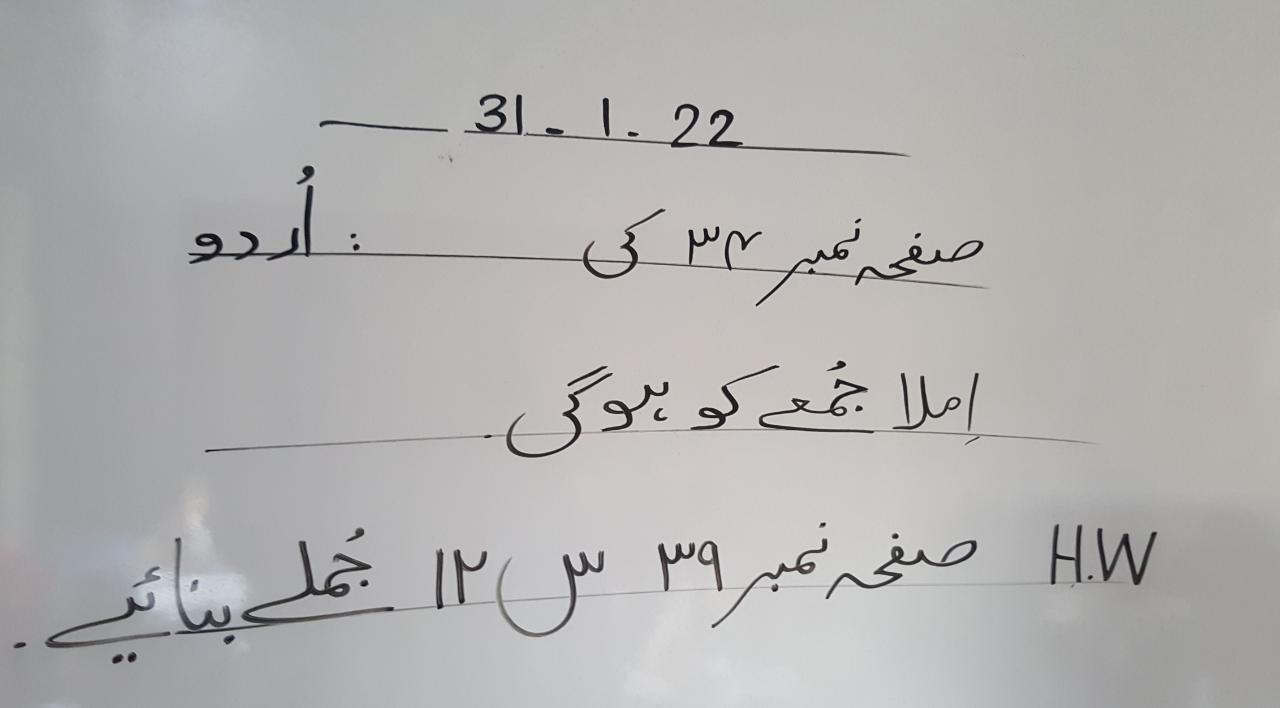 31-1.22
اُردو : صفحہ نمبر ۳۴ کی
اِملا جُمعے کو ہوگی.
H.W صفحہ نمبر ۳۹ س ۱۲ جُملے بنائیے.